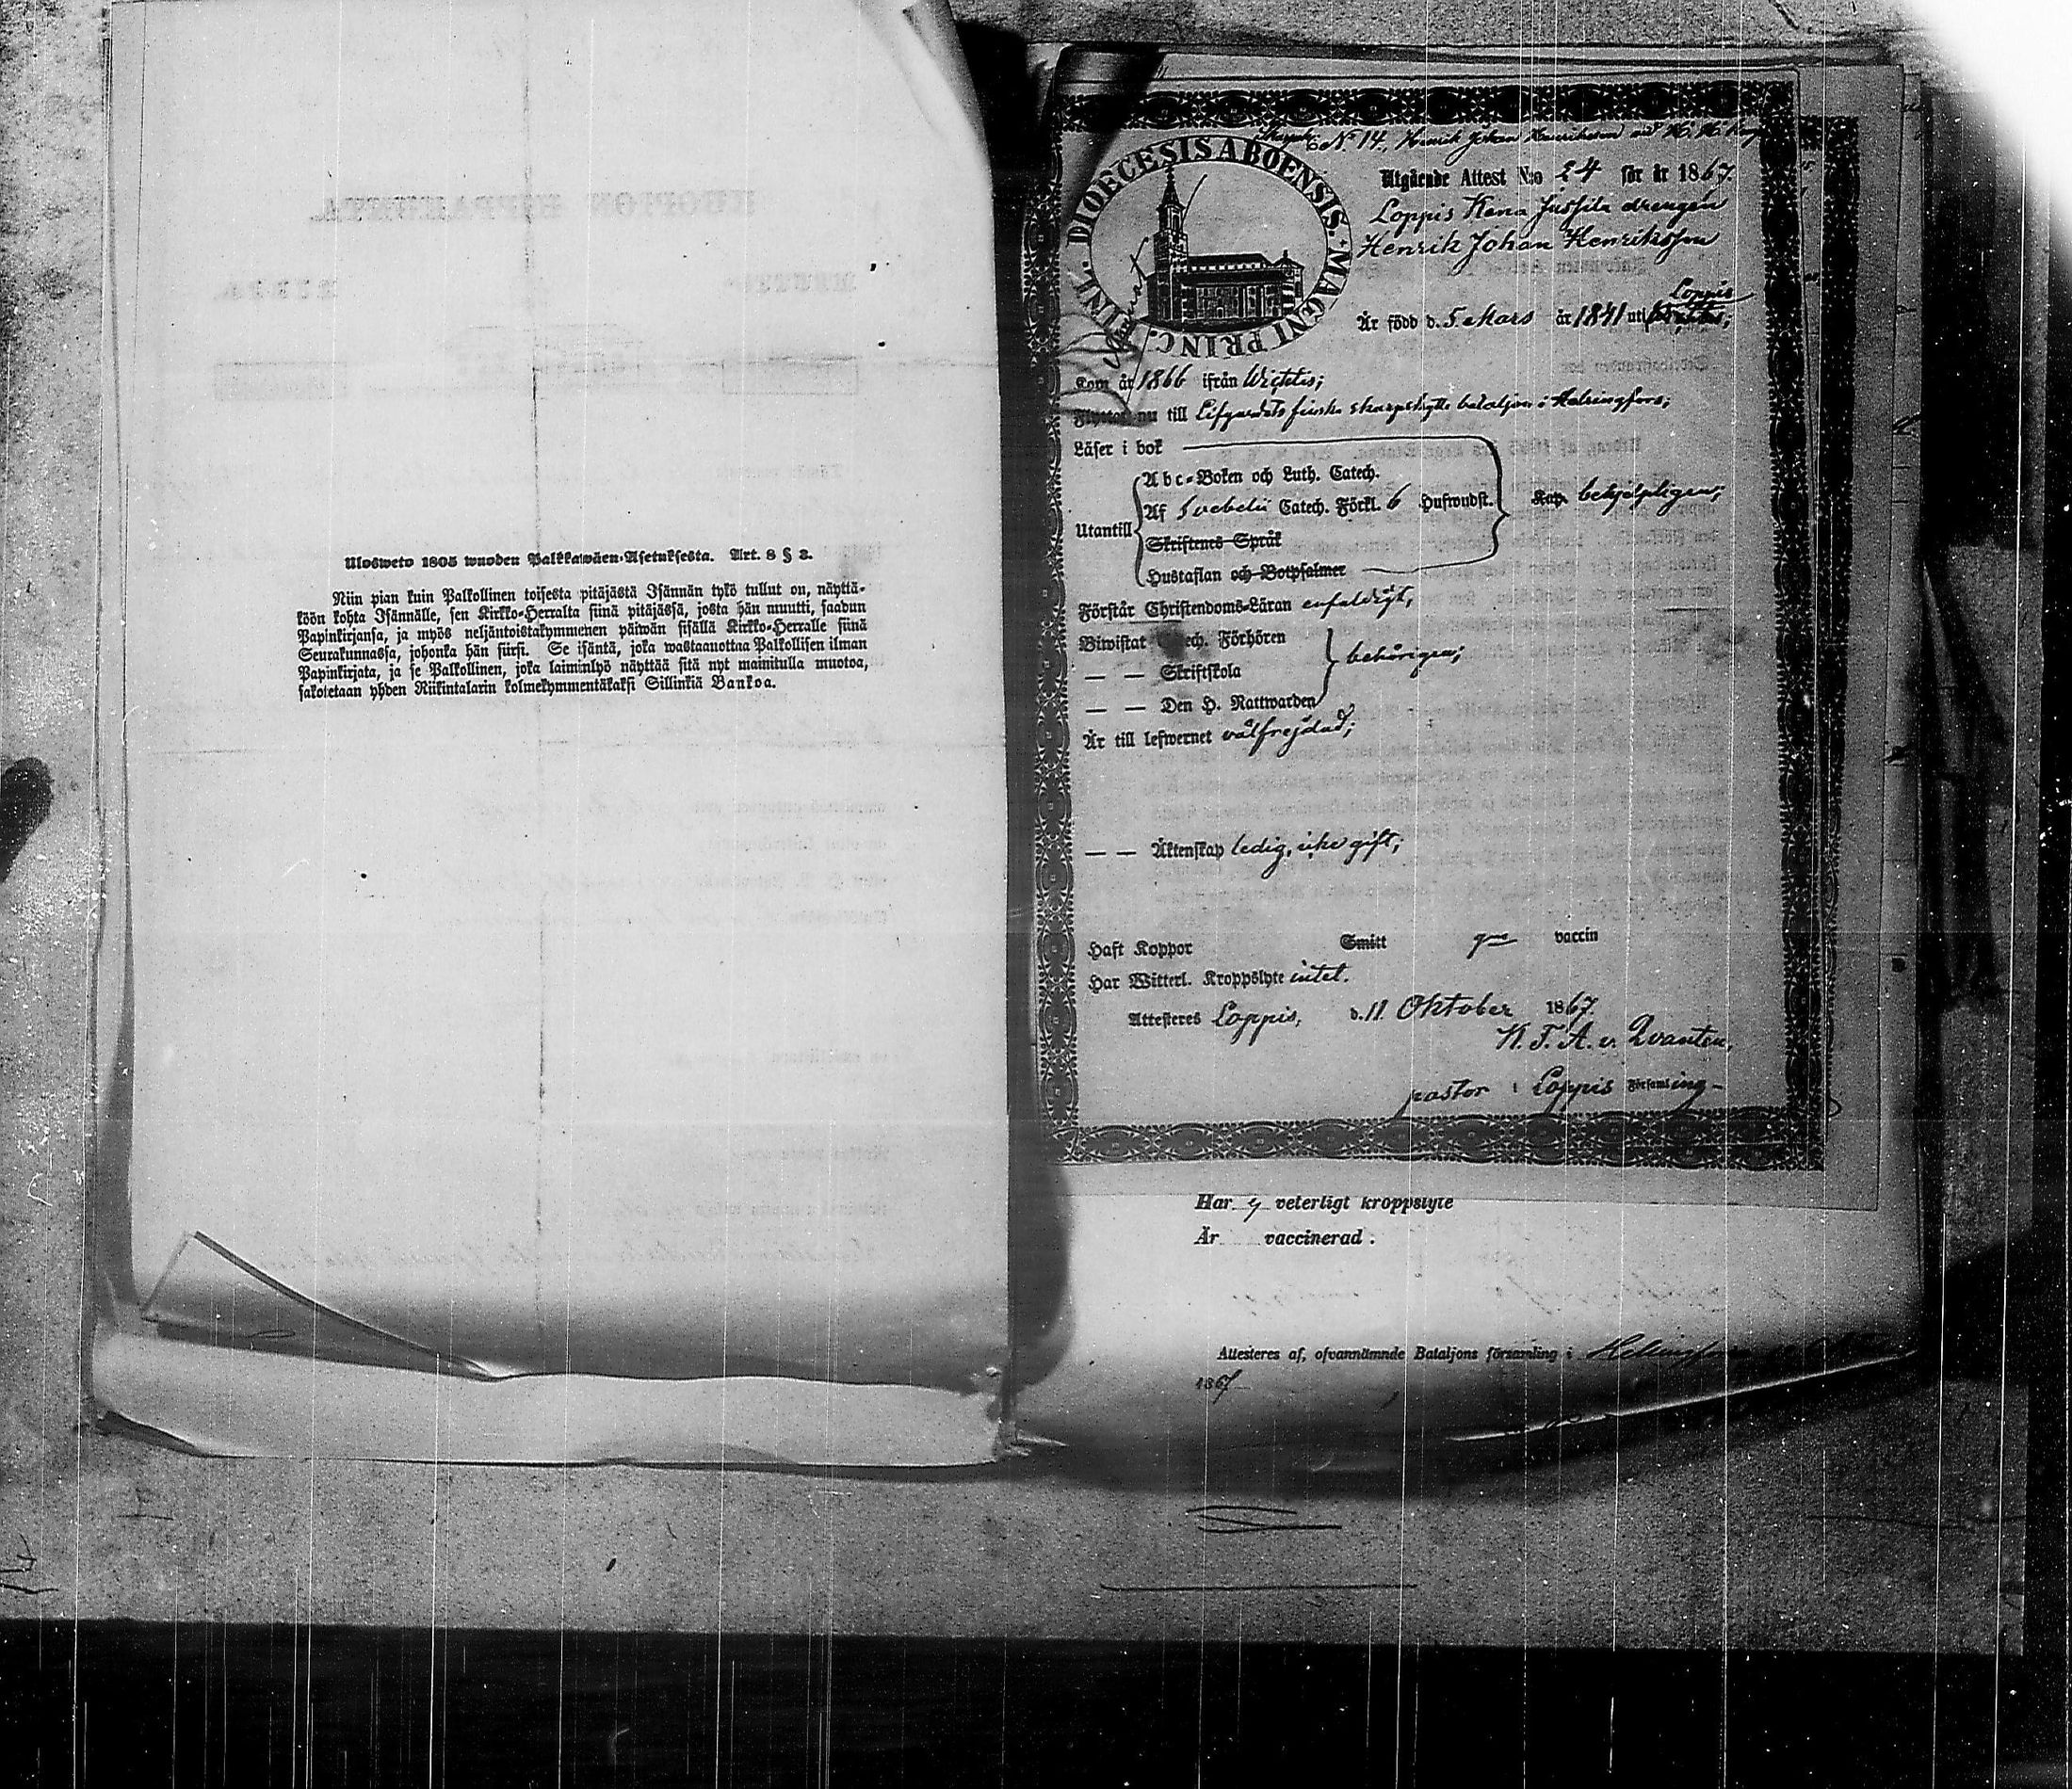 Ulosweto 1805 wuoden Palkkawäen-Asetuksesta. Art. 8 § 3.
Niin pian kuin Palkollinen toisesta pitäjästä Isännän tykö tullut on, näyttä-
köön kohta Isännälle, sen Kirkko-Herralta siinä pitäjässä, josta hän muutti, saadun
Papinkirjansa, ja myös neljäntoistakymmenen päiwän sisällä Kirkko-Herralle siinä
Seurakunnassa, johonka hän siirsi. Se isäntä, joka wastaanottaa Palkollisen ilman
Papinkirjata, ja se Palkollinen, joka laiminlyö näyttää sitä nyt mainitulla muotoa,
sakotetaan yhden Riikintalarin kolmekymmentäkaksi Sillinkiä Bankoa.
No 14, Henrik Johan Henriksson
DIOECESIS ABOENSIS. MAGNI PRINC. FINL.
Utgående Attest N:o 24 för år 1867.
Loppis Kena Jussila drengen
Henrik Johan Henriksson
Loppis
Är född d. 5 Mars år 1841 uti
Kom år 1866 ifrån Wichtis;
Flyttar nu till Lifgardets finska skarpskytte bataljon i Helsingfors;
Läser i bok
Abc-Boken och Luth. Catech.
Utantill Af Svebelii Catech. Förkl. 6 Hufwudst. behjelpligen;
Skriftenes Språk
Hustaflan och Botpsalmer
Förstår Christendoms-Läran enfaldigt,
Biwistat Catech. Förhören
— — Skriftskola behörigen;
— — Den H. Nattwarden
Är till lefwernet välfrejdad;
— — Äktenskap ledig, icke gift;
Haft Koppor Smitt vaccin
Har Witterl. Kroppslyte intet.
Attesteres Loppis, d. 11 Oktober 1867.
K. T. A. v. Qvanten,
pastor i Loppis Församling
Har ej veterligt kroppslyte
Är vaccinerad.
Attesteres af, ofvannämnde Bataljons församling i Helsingfors
1867